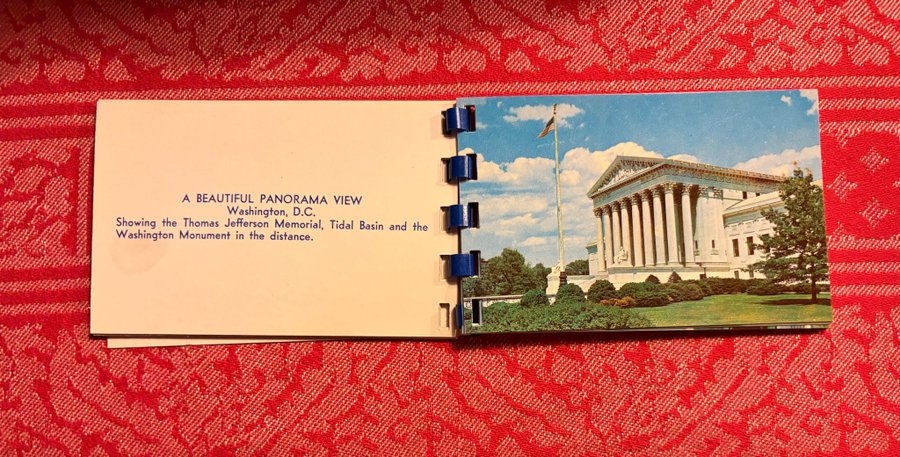 A BEAUTIFUL PANORAMA VIEW
Washington, D.C.
Showing the Thomas Jefferson Memorial, Tidal Basin and the
Washington Monument in the distance.